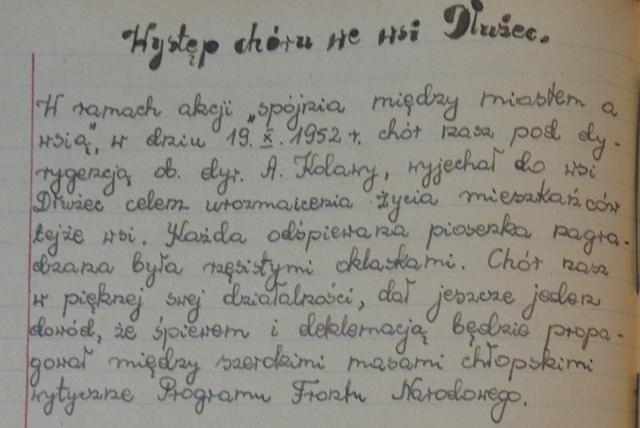 Występ chóru we wsi Dłużec.
W ramach akcji „spójnia między miastem a
wsią”, w dniu 19.X.1952 r. chór nasz pod dy-
rygencją ob. dyr. A. Kolawy, wyjechał do wsi
Dłużec celem urozmaicenia życia mieszkańców
tejże wsi. Każda odśpiewana piosenka nagra-
dzana była rzęsistymi oklaskami. Chór nasz
w pięknej swej działalności, dał jeszcze jeden
dowód, że śpiewem i deklamacją będzie propa-
gował między szerokimi masami chłopskimi
wytyczne Programu Frontu Narodowego.